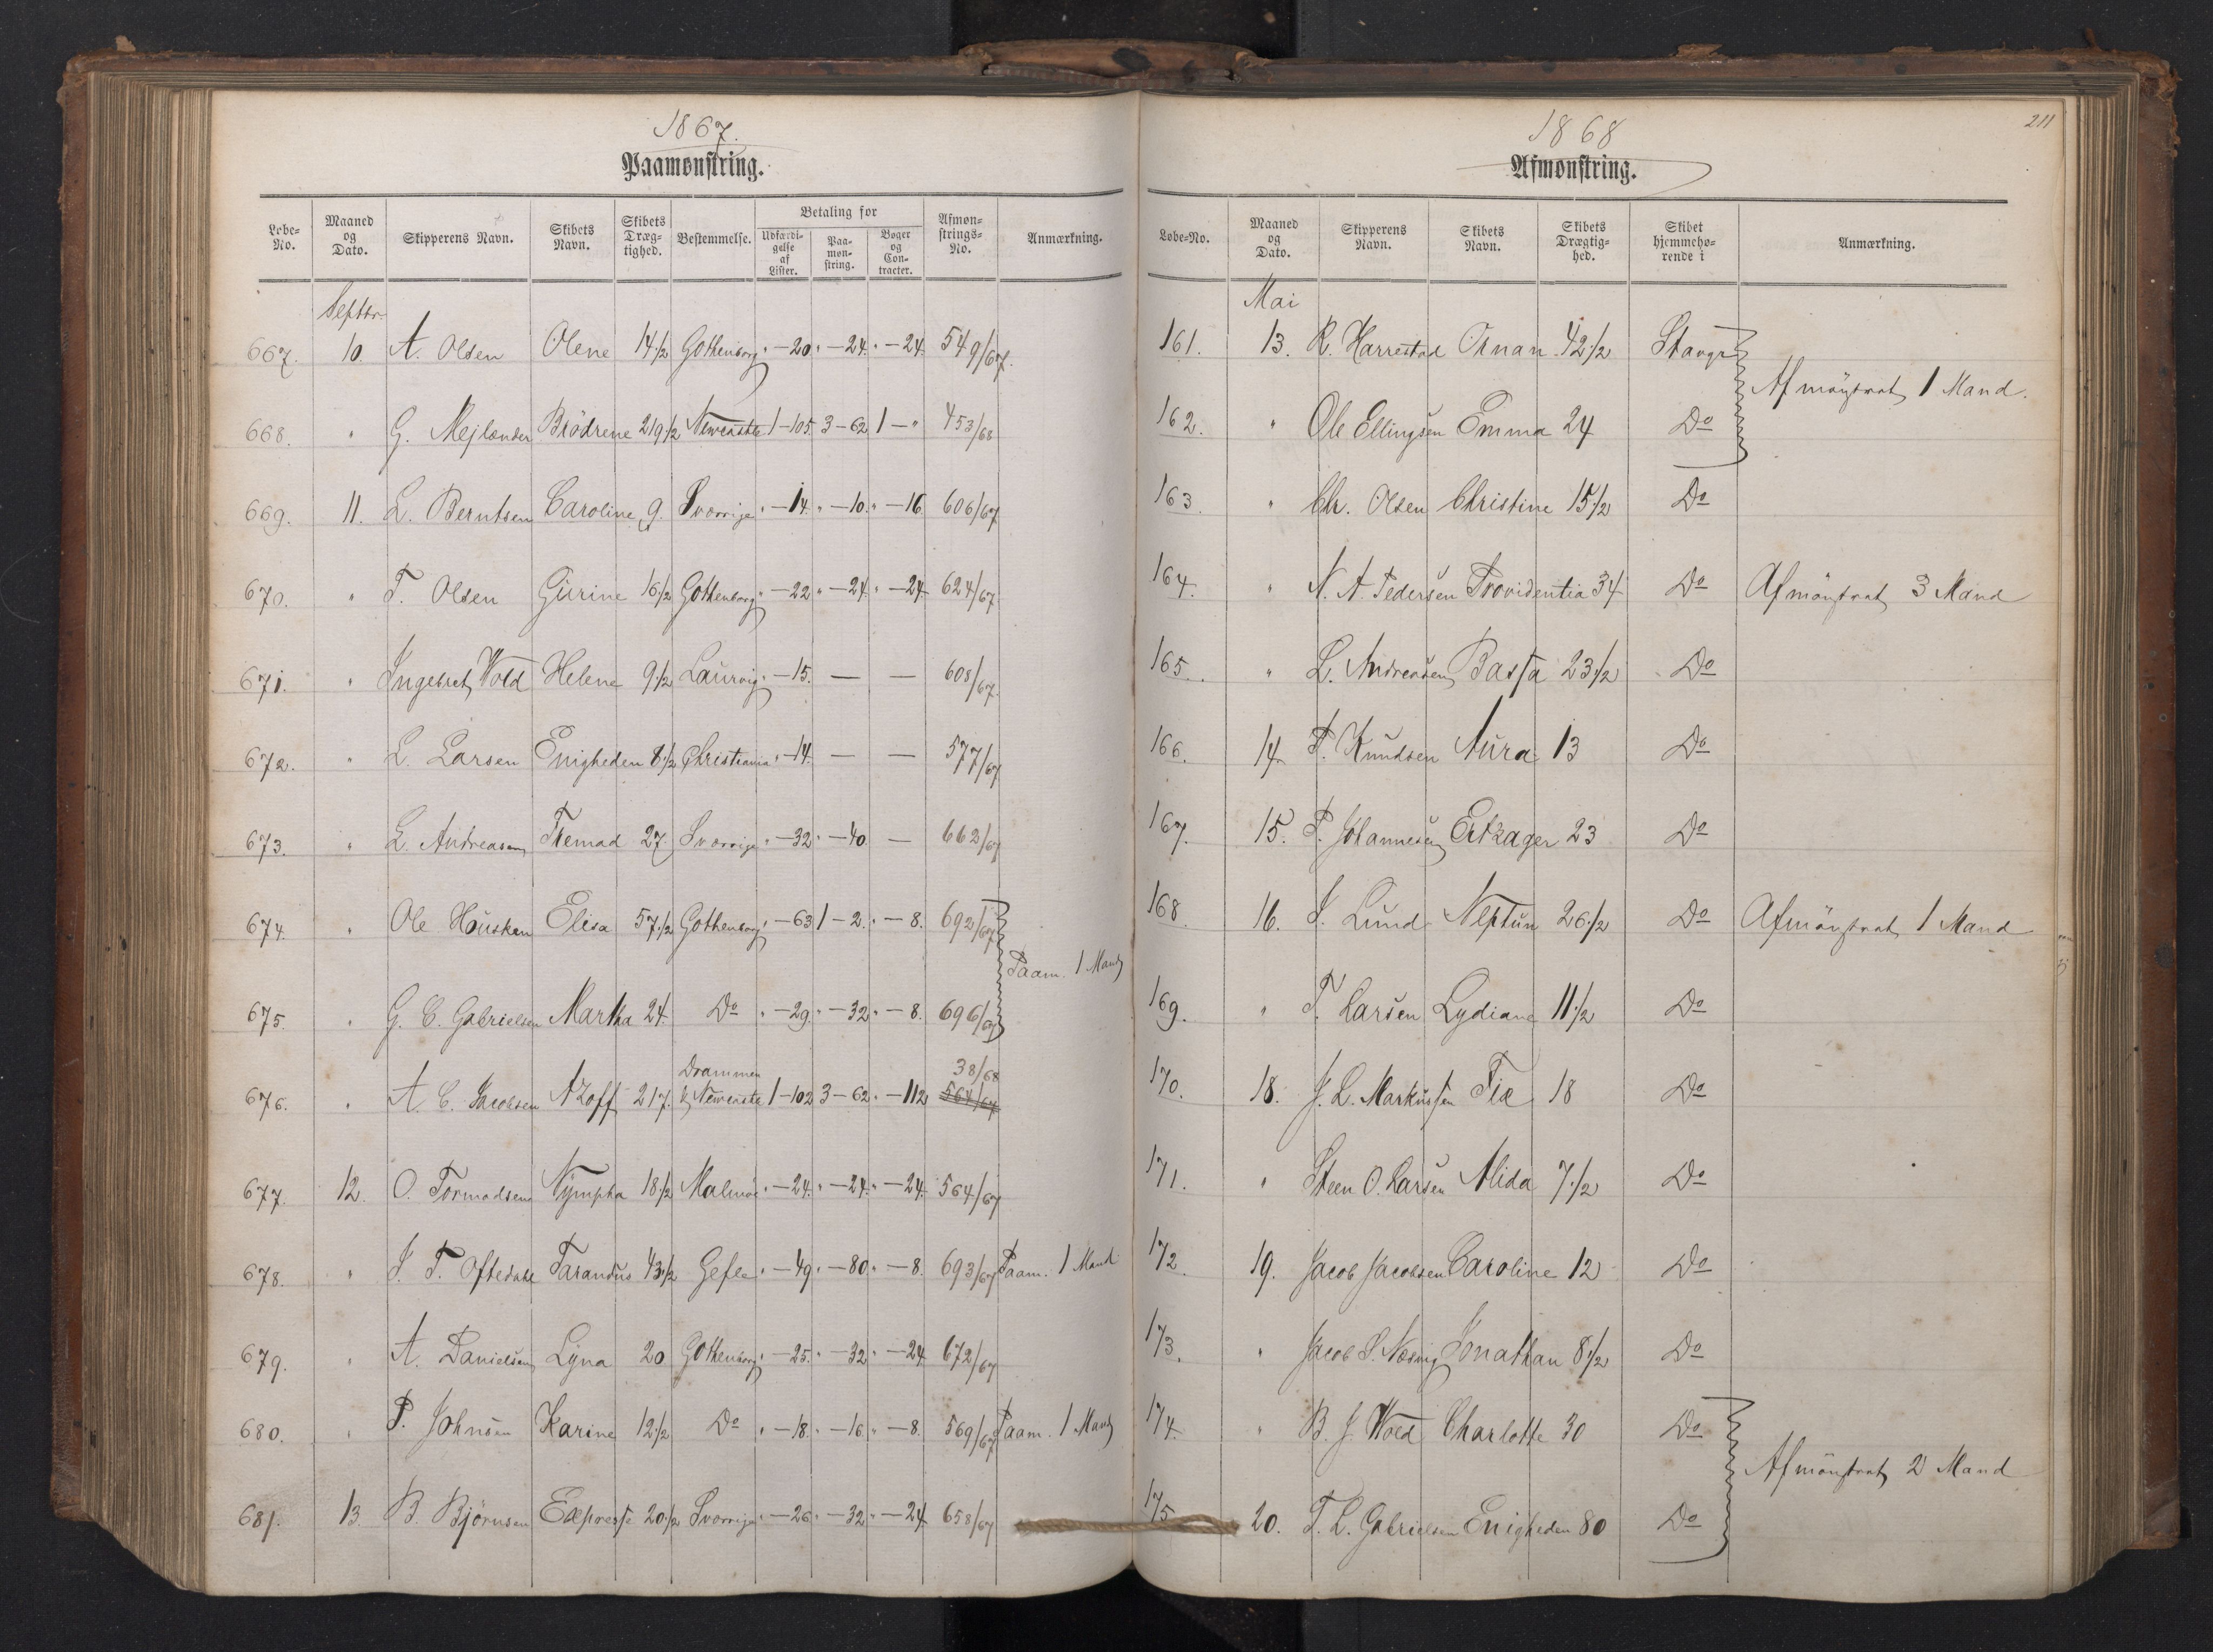 1867.
Paamønstring.
Løbe-No. Maaned og Dato. Skipperens Navn. Skibets Navn. Skibets Dræg-tighed. Bestemmelse. Betaling for Udfærdi-gelse af Lister. Paa-møn-string. Bøger og Con-tracter. Afmøn-strings-No. Anmærkning.
Septbr.
667. 10. A. Olsen Olene 14 1/2 Gothenborg " - 20 " - 24. " - 24. 549/67.
668. " G. Mejlænder Brödrene 219 1/2 Newcastle 1 - 105. 3 - 62 1 - " 453/68
669. 11. L. Berntsen Caroline 9. Sverrige " - 14. " - 10. " - 16. 606/67
670. " T. Olsen Gurine 16 1/2 Gothenborg " - 22 " - 24. " - 24. 624/67.
671. " Ingebret Wold Helene 9 1/2 Laurvig " - 15. — — 608/67.
672. " L. Larsen Enigheden 8 1/2 Christiania " - 14. — — 577/67
673. " L. Andreasen Fremad 27. Sverrige " - 32 " - 40. — 662/67
674. " Ole Housken Elisa 57 1/2 Gothenborg " - 63 1 - 2. " - 8. 692/67
Paam. 1 Mand
675. " G. C. Gabrielsen Martha 24. Do " - 29. " - 32 " - 8. 696/67
676. " A. C. Jacobsen Azoff 217. Drammen & Newcastle 1 - 102 3 - 62 " - 112 38/68 564/67
677. 12. O. Tormodsen Nympha 18 1/2 Malmöe " - 24. " - 24. " - 24. 564/67
678. " J. T. Oftedahl Tarandus 43 1/2 Gefle " - 49. " - 80. " - 8. 693/67 Paam. 1 Mand
679. " A. Danielsen Lyna 20 Gothenborg " - 25. " - 32 " - 24 672/67
680. " P. Johnsen Karine 12 1/2 Do " - 18. " - 16. " - 8. 569/67 Paam. 1 Mand
681. 13. B. Björnsen Expresse 20 1/2 Sverrige " - 26. " - 32 " - 24 658/67
211
1868
Afmønstring.
Løbe-No. Maaned og Dato. Skipperens Navn. Skibets Navn. Skibets Drægtig-hed. Skibet hjemmehø-rende i Anmærkning.
Mai
161. 13. R. Harrestad Ornan 42 1/2 Stavgr
Afmönstret 1 Mand.
162. " Ole Ellingsen Emma 24 Do
163. " Chr. Olsen Christine 15 1/2 Do
164. " N. A. Pedersen Providentia 34 Do Afmönstret 3 Mand
165. " L. Andreasen Basta 23 1/2 Do
166. 14. T. Knudsen Aura 13 Do
167. 15. P. Johannesen 23 Do
168. 16. J. Lund Neptun 26 1/2 Do Afmönstret 1 Mand
169. " T. Larsen Lydiane 11 1/2 Do
170. 18. J. L. Markussen Fix 18 Do
171. " Steen O. Larsen Alida 7 1/2 Do
172. 19. Jacob Jacobsen Caroline 12 Do
173. " Jacob S. Næsvig Jonathan 8 1/2 Do
174. " B. J. Wold Charlotte 30 Do
Afmönstret 2 Mand
175. 20. T. L. Gabrielsen Enigheden 80 Do